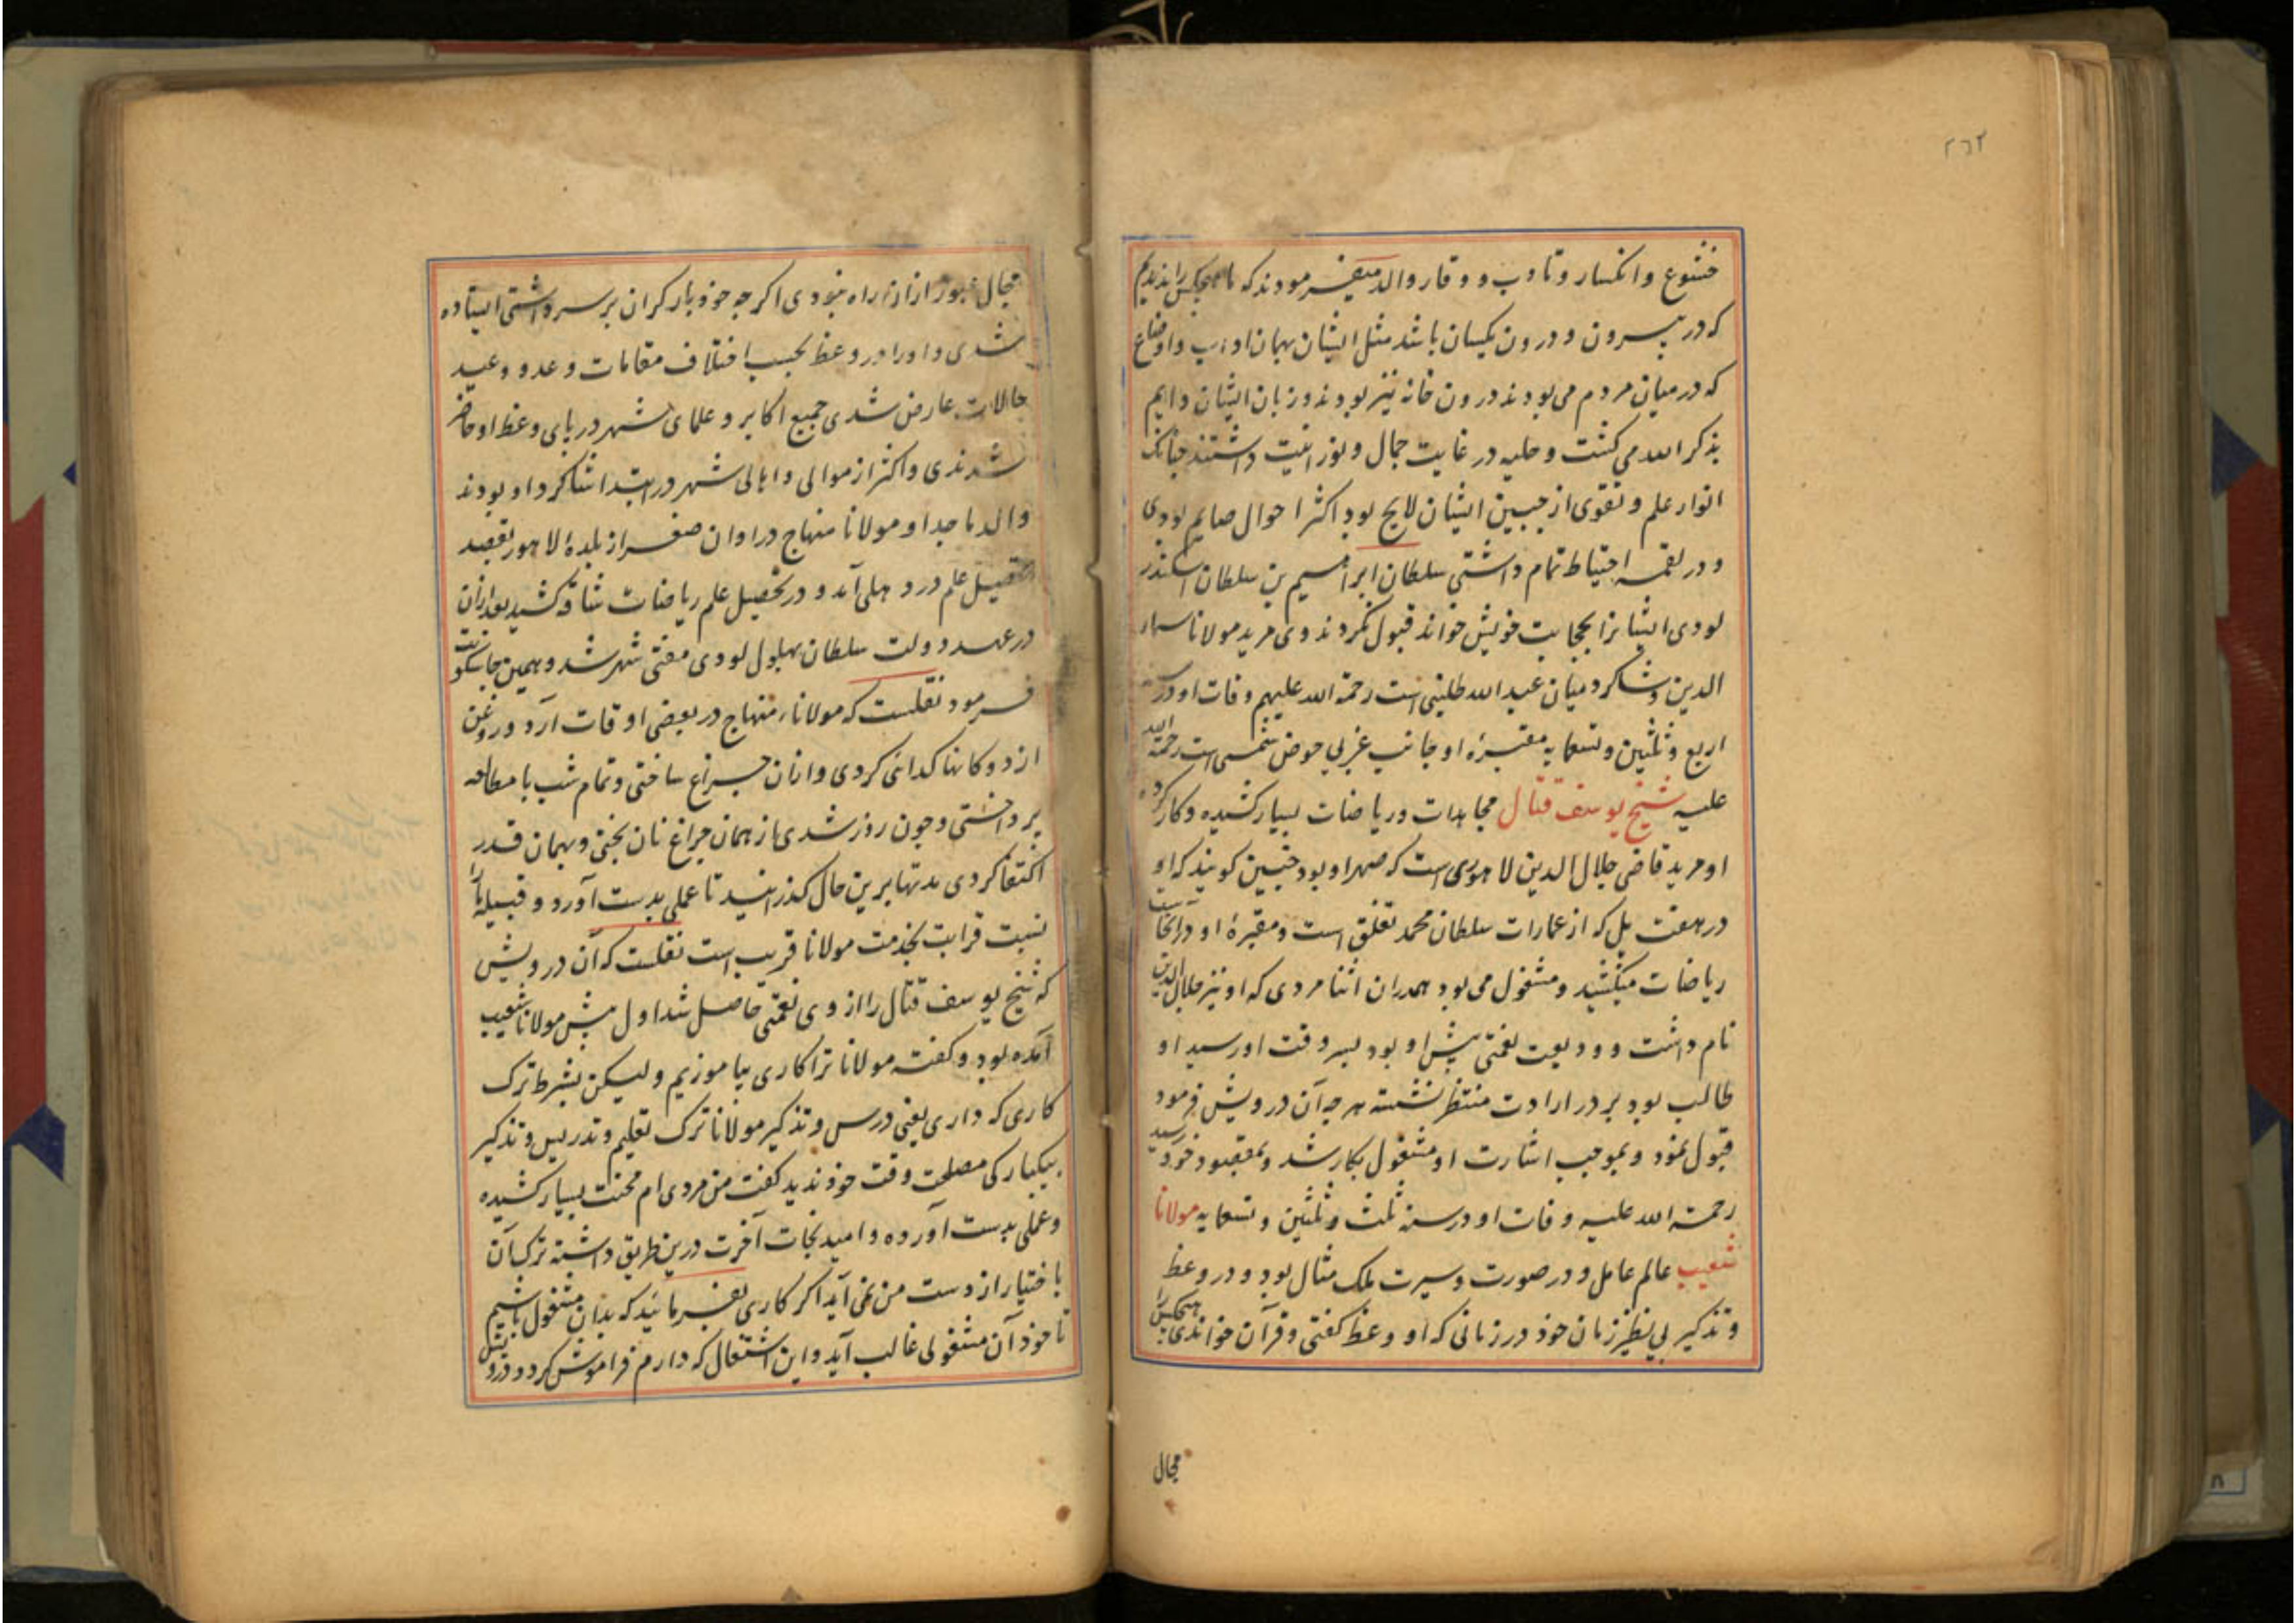 ۲۶۲
خشوع و انکسار و تادب و وقار والد میفرمودند که ما هیچکس را ندیدیم
که در بیرون و درون یکسان باشد مثل ایشان همان اداب و اوضاع
که در میان مردم می بودند درون خانه نیز بودند و زبان ایشان دایم
بذکر الله می کشت و حلیه در غایت جمال و نورانیت داشتند چنانک
انوار علم و تقوی از جبین ایشان لایح بود اکثر احوال صایم بودی
و در لقمه احتیاط تمام داشتی سلطان ابراهیم بن سلطان اسکندر
لودی ایشانرا بحجابت خویش خواند قبول نکردند وی مرید مولانا سماء
الدین و شاکرد میان عبد الله طلینی است رحمة الله علیهم وفات او در سنه
اربع و ثلثین و تسعمایه مقبرهٔ او جانب غربی حوض شمسی است رحمة الله
علیه شیخ یوسف قتال مجاهدات و ریاضات بسیار کشیده و کار کرده
او مرید قاضی جلال الدین لاهوری است که صهر او بود چنین کویند که او
در هفت پل که از عمارات سلطان محمد تغلق است و مقبرهٔ او در انجاست
ریاضات میکشید و مشغول می بود همدران اثنا مردی که او نیز جلال الدین
نام داشت و ودیعت نعمتی پیش او بود بسر وقت او رسید او
طالب بود بر در ارادت منتظر نشسته هر چه آن درویش فرمود
قبول نمود و بموجب اشارت او مشغول بکار شد و بمقصود خود رسید
رحمة الله علیه وفات او در سنه ثلث و ثلثین و تسعمایه مولانا
شعیب عالم عامل و در صورت و سیرت ملک مثال بود و در وعظ
و تذکیر بی نظیر زمان خود در زمانی که او وعظ کفتی و قرآن خواندی هیچکس را
مجال
مجال عبور ازان راه نبودی اکر چه خود بار کران بر سر داشتی ایستاده
شدی و او را در وعظ بحسب اختلاف مقامات وعد و وعید
حالات عارض شدی جمیع اکابر و علمای شهر در پای وعظ او حاضر
شدندی و اکثر از موالی و اهالی شهر در ابتدا شاکرد او بودند
والد ماجد او مولانا منهاج در اوان صغر از بلدهٔ لاهور بقصد
تحصیل علم در دهلی آمد و در تحصیل علم ریاضات شاقه کشید بعد ازان
در عهد دولت سلطان بهلول لودی مفتی شهر شد و همین جا سکونت
فرمود نقلست که مولانا منهاج در بعضی اوقات آرد و روغن
از دوکانها کدائی کردی و ازان چراغ ساختی و تمام شب با مطالعه
پرداختی و چون روز شدی از همان چراغ نان پختی و بهمان قدر
اکتفا کردی مدتها برین حال کذرانید تا عملی بدست آورد و قبیله ما را
نسبت قرابت بخدمت مولانا قریب است نقلست که آن درویش
که شیخ یوسف قتال را از وی نعمتی حاصل شد اول پیش مولانا شعیب
آمده بود و کفته مولانا ترا کاری بیاموزیم ولیکن بشرط ترک
کاری که داری یعنی درس و تذکیر مولانا ترک تعلیم و تدریس و تذکیر
بیکبارکی مصلحت وقت خود ندید کفت من مردی ام محنت بسیار کشیده
و عملی بدست آورده و امید نجات آخرت درین طریق داشته ترک آن
باختیار از دست من نمی آید اکر کاری بفرمائید که بدان مشغول باشیم
تا خود آن مشغولی غالب آید و این اشتغال که دارم فراموش کردد و درویش